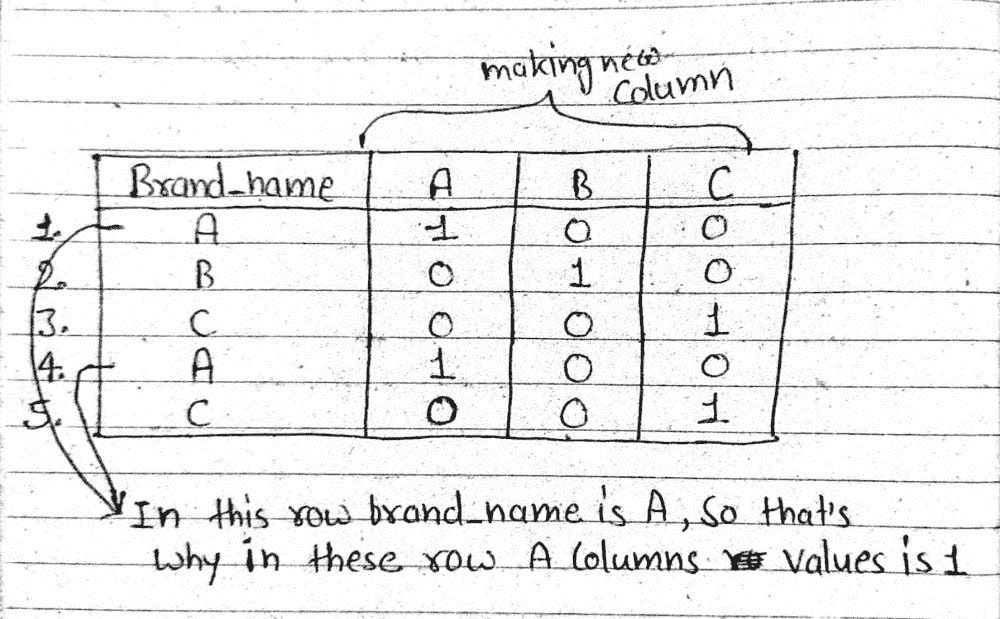 making new
Column
Brand_name A B C
1. A 1 0 0
2. B 0 1 0
3. C 0 0 1
4. A 1 0 0
5. C 0 0 1
In this row brand_name is A, So that's
why in these row A Columns values is 1